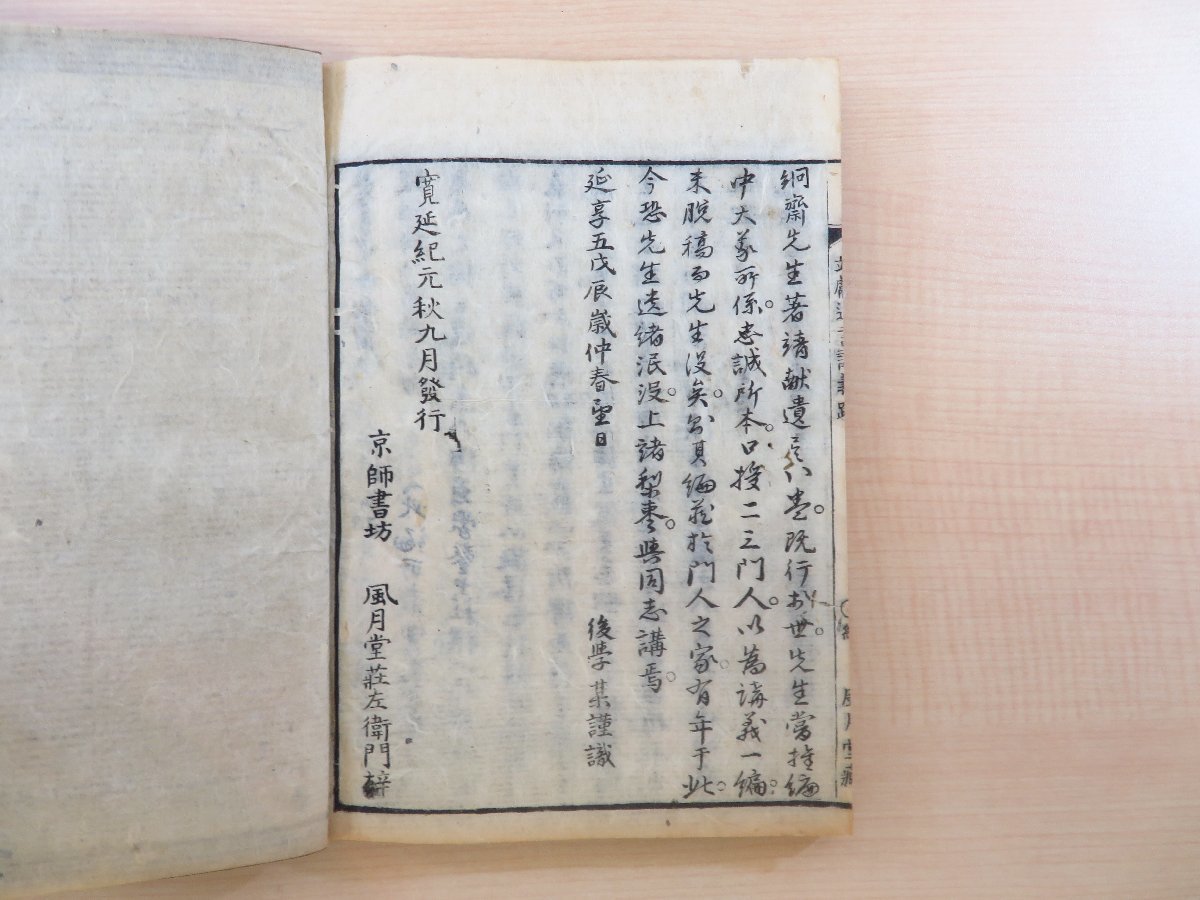 絅齋先生著靖献遺言八巻。既行於世。先生嘗推編
中大義所係。忠誠所本。口授二三門人。以為講義一編。
未脱稿而先生没矣。其編花於門人之家。有年于此。
今恐先生遺緒泯没。上諸梨棗。與同志講焉。
延享五戊辰歳仲春望日
後學某謹識
寛延紀元秋九月發行
京師書坊 風月堂莊左衛門梓
風月堂藏